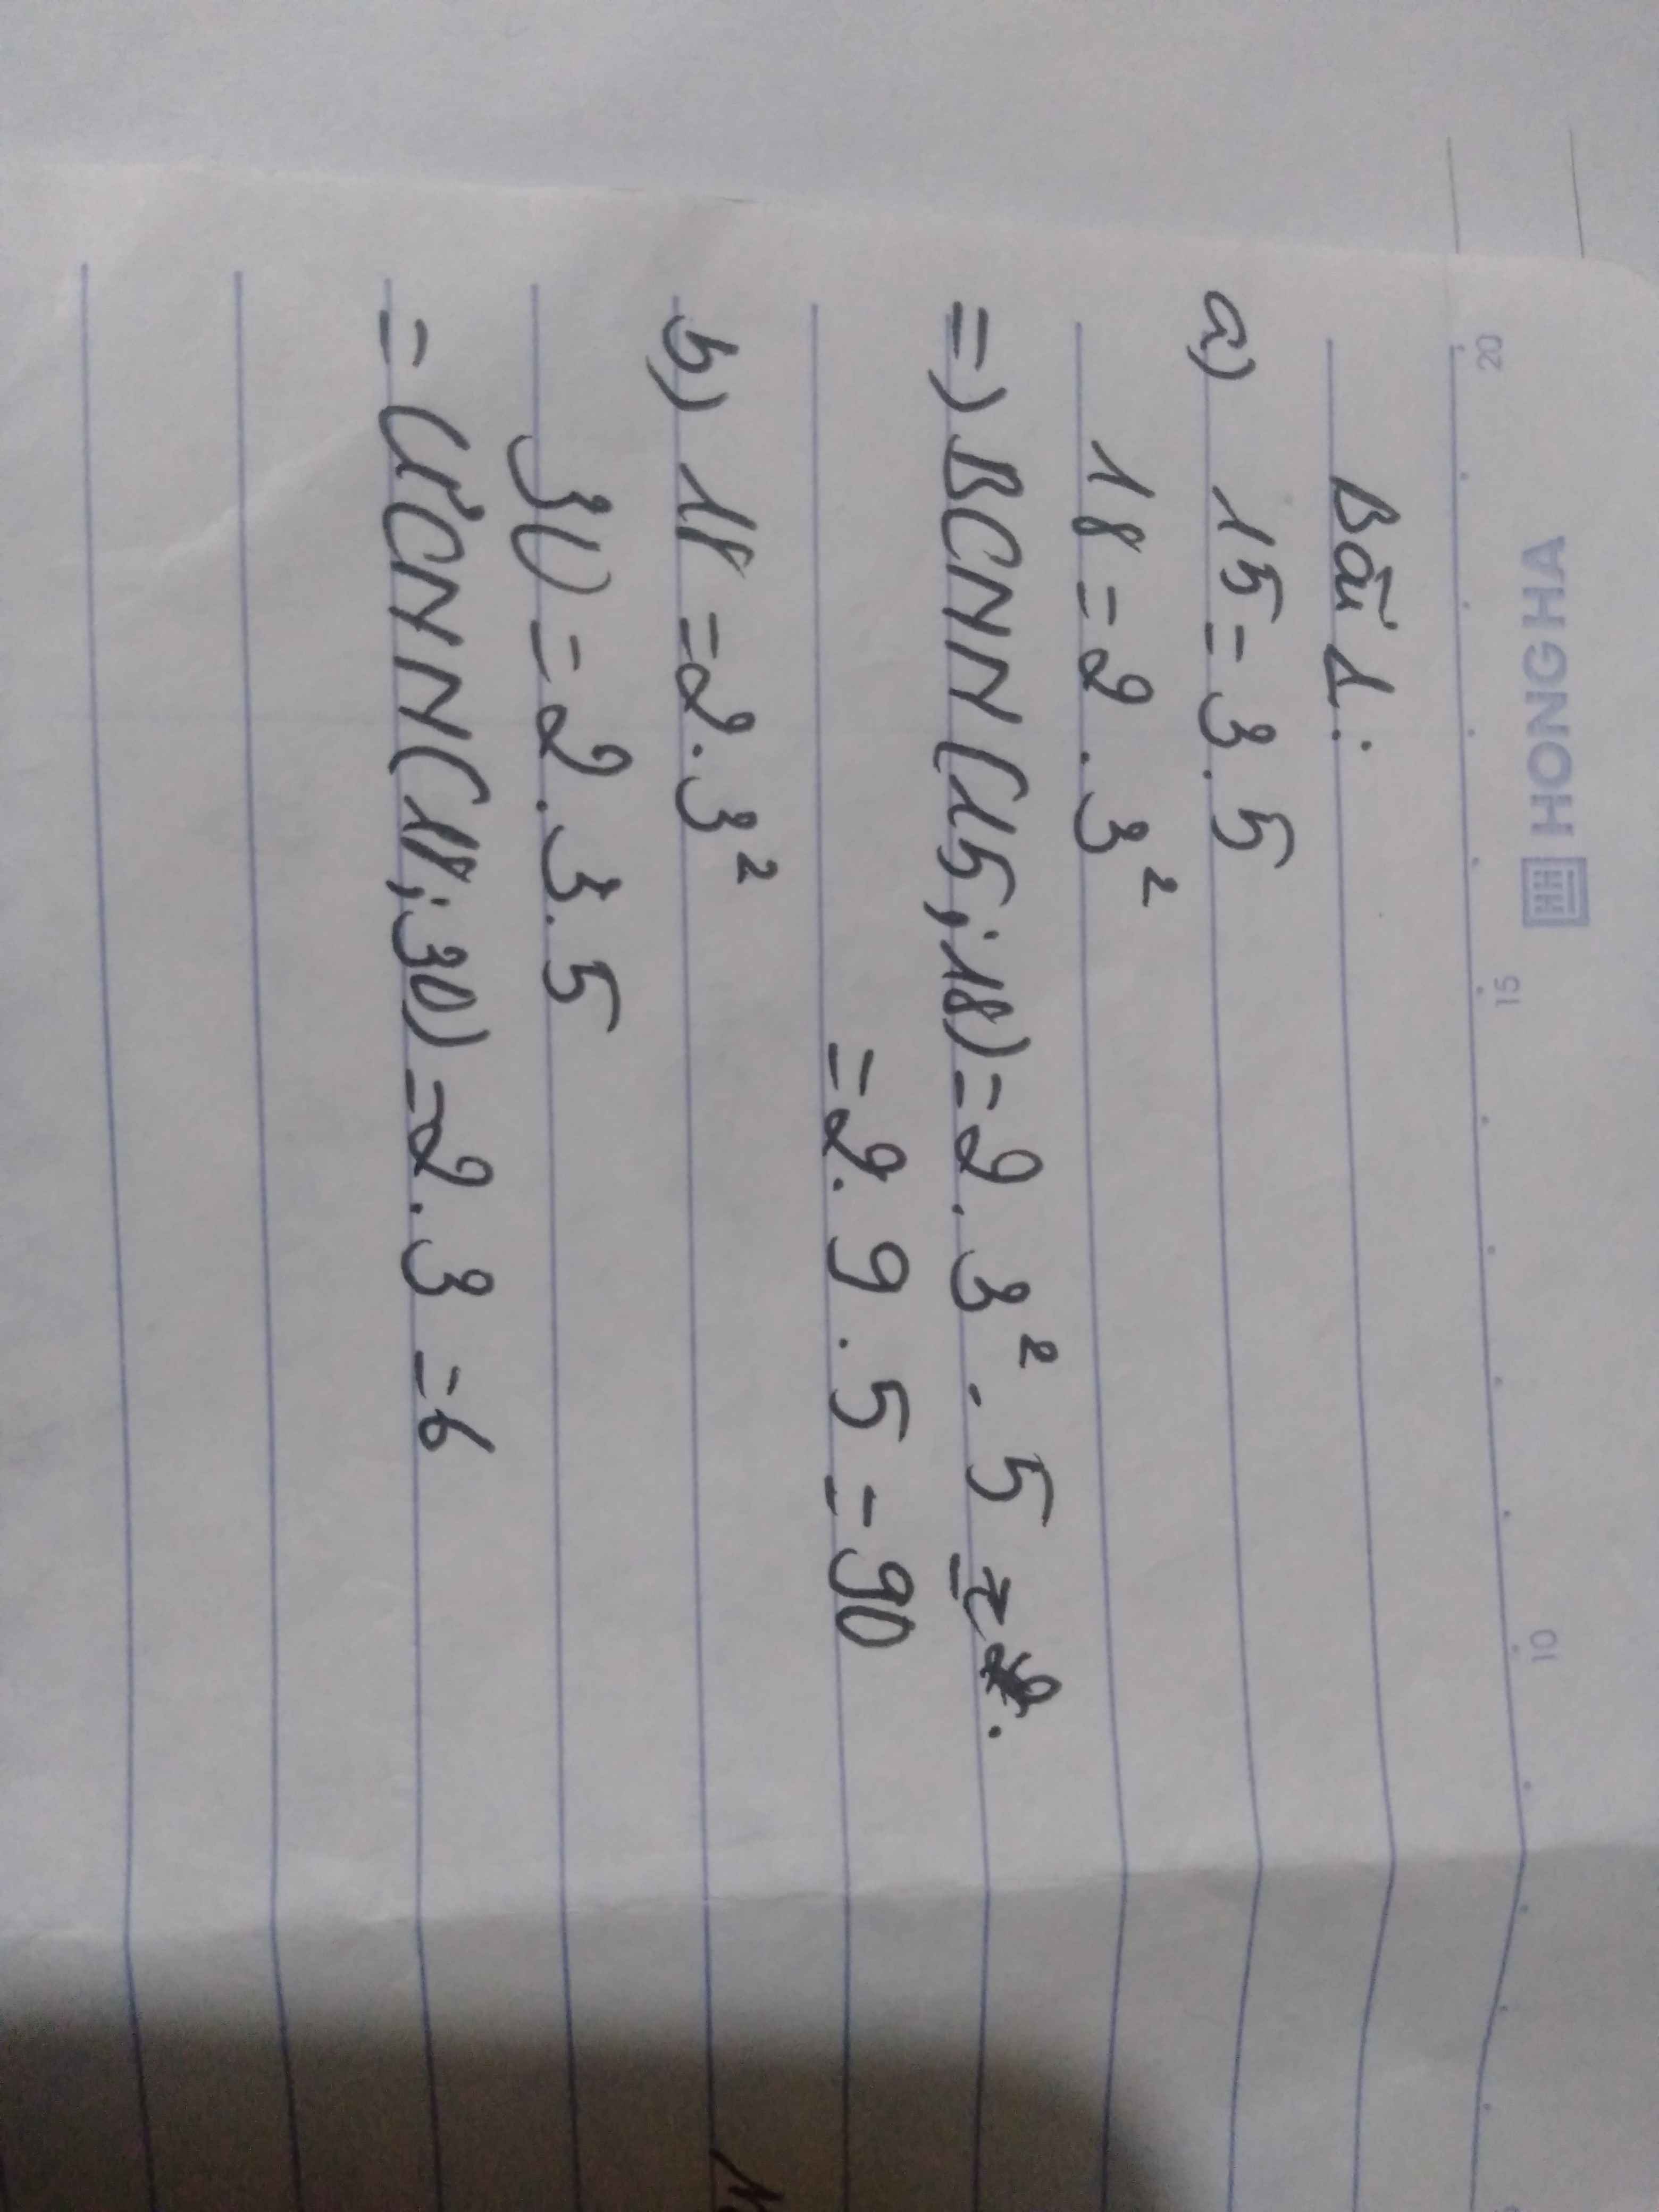 HONG HA
20 15 10
Bài 1:
a) 15 = 3.5
18 = 2.3²
=) BCNN(15;18) = 2.3².5 =
= 2.9.5 = 90
b) 18 = 2.3²
30 = 2.3.5
= ƯCNN(18;30) = 2.3 = 6